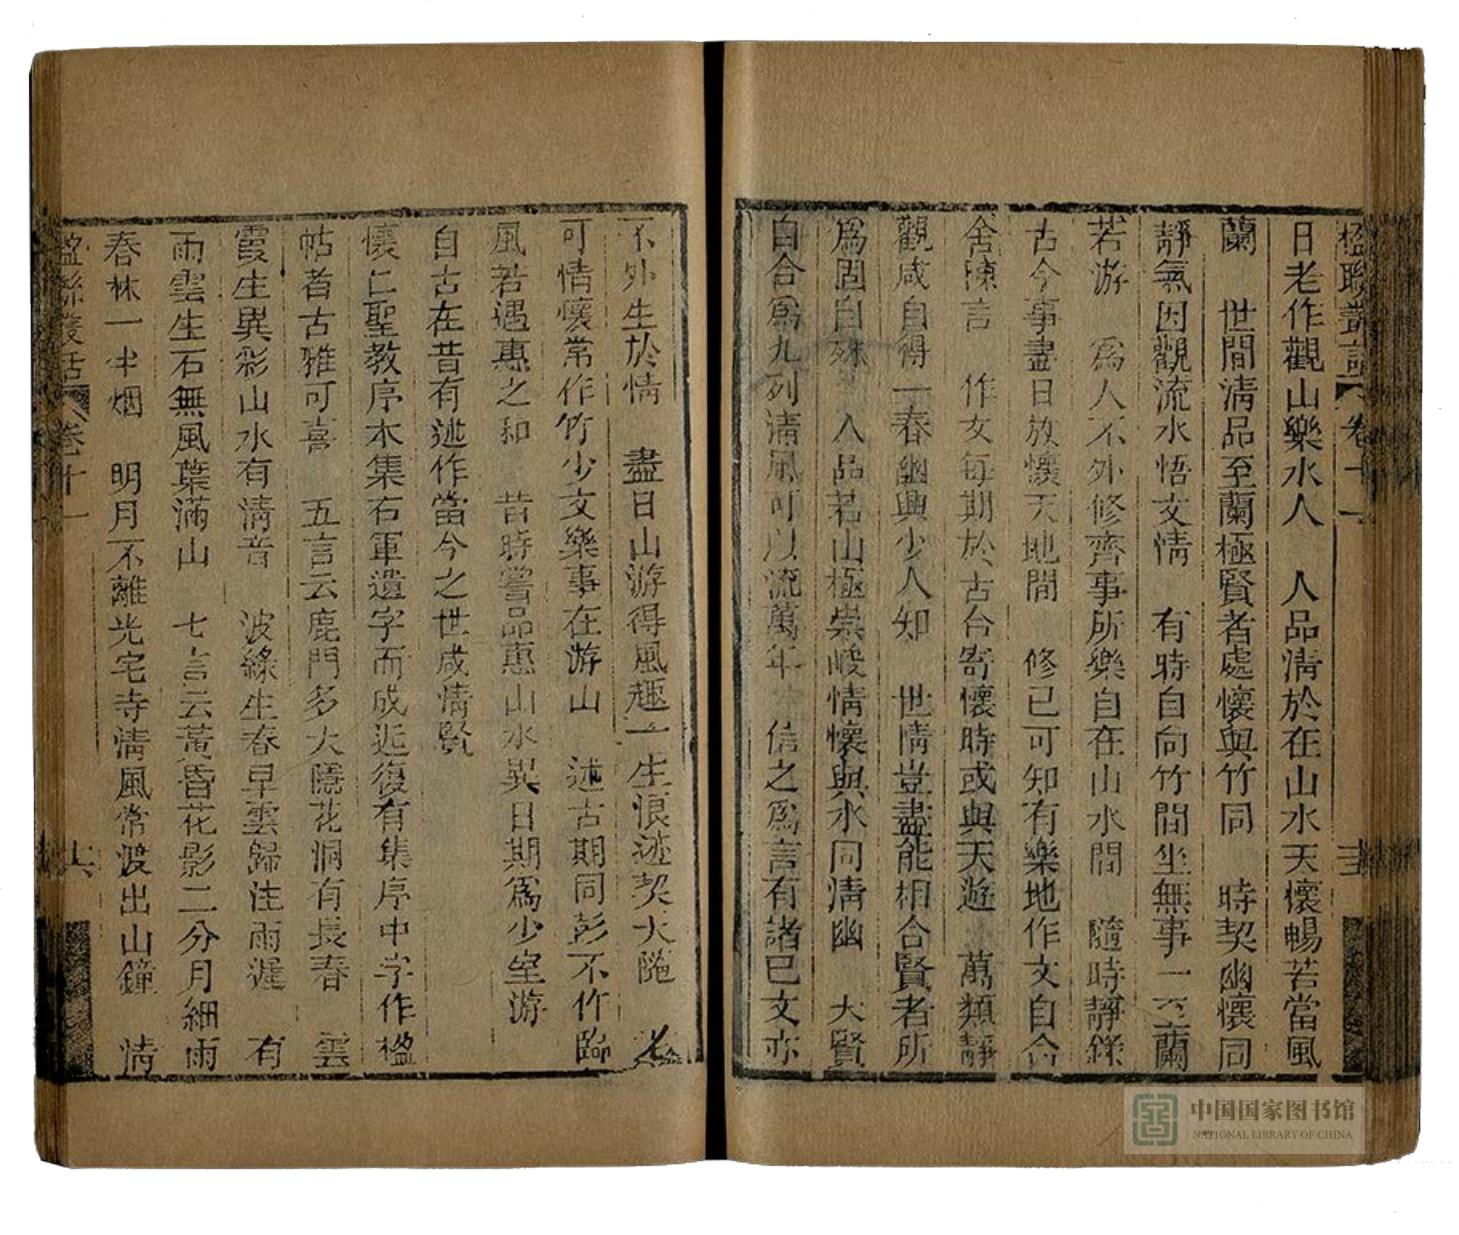 楹聯叢話 卷十一
日老作觀山樂水人　人品清於在山水天懷暢若當風
蘭　世間清品至蘭極賢者處懷與竹同　時契幽懷同
靜氣因觀流水悟文情　有時自向竹間坐無事一不蘭
若游　為人不外修齊事所樂自在山水間　隨時靜錄
古今事盡日放懷天地間　修己可知有樂地作文自合
舍陳言　作文每期於古合寄懷時或與天遊　萬類靜
觀咸自得一春幽興少人知　世情豈盡能相合賢者所
為固自殊　人品若山極崇峻情懷與水同清幽　大賢
自合為九列清風可以流萬年　信之為言有諸己文亦
不外生於情　盡日山游得風趣一生浪迹契大　老
可情懷常作竹少文樂事在游山　述古期同彭不作臨
風若遇惠之和　昔時嘗品惠山水異日期為少室游
自古在昔有述作當今之世咸情賢
懷仁聖教序本集右軍遺字而成近復有集序中字作楹
帖者古雅可喜　五言云鹿門多大隱花洞有長春　雲
霞生異彩山水有清音　波綠生春早雲歸注雨遲　有
雨雲生石無風葉滿山　七言云黃昏花影二分月細雨
春林一半烟　明月不離光宅寺清風常渡出山鐘　清
楹聯叢話 卷十一 六
中国国家图书馆
NATIONAL LIBRARY OF CHINA